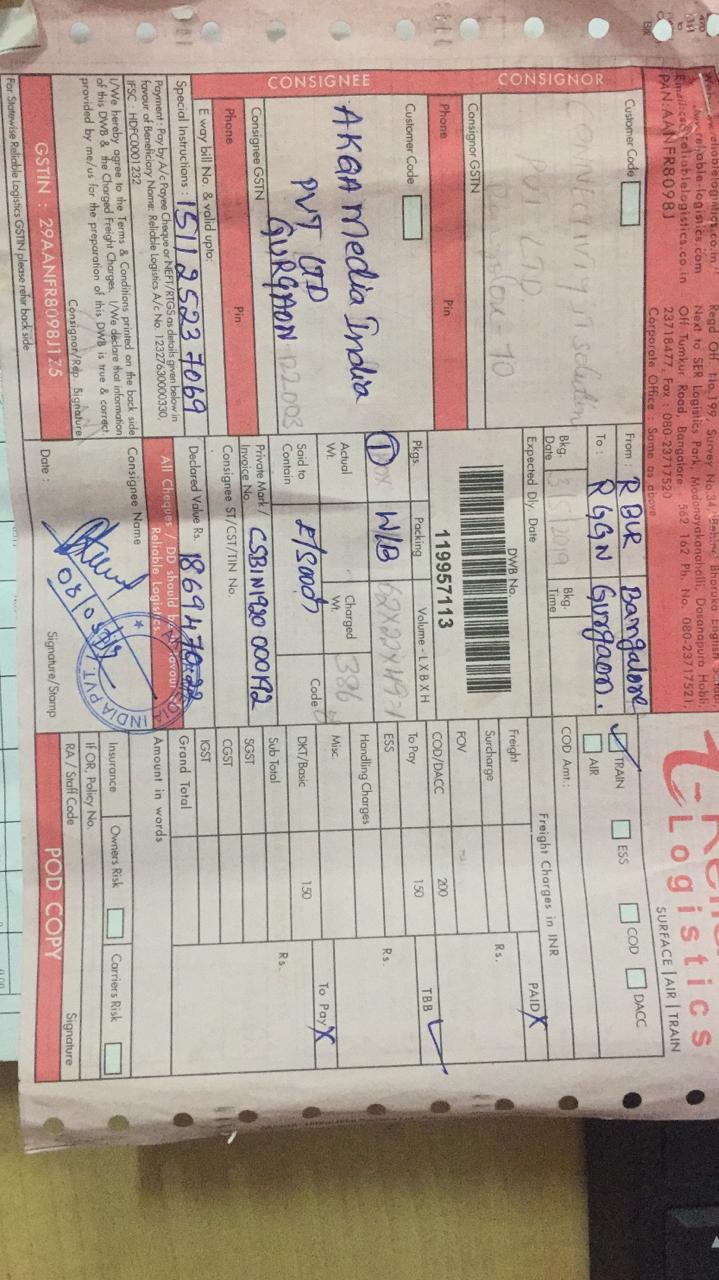 Logistics
SURFACE | AIR | TRAIN
Regd Off: No.199, Survey No.34,
Next to SER Logistics Park, Madanayakanahalli, Dasanapura Hobli,
Off. Tumkur Road, Bangalore - 562 162 Ph. No. 080-23717521,
23718477, Fax : 080-23717520
Corporate Office : Same as above
PAN:AANFR8098J
CONSIGNOR
Customer Code
Consignor GSTN
Phone
Pin
CONSIGNEE
Customer Code
AKGA Media India
PVT LTD
GURGAON
Consignee GSTN
Phone
Pin
E way bill No. & valid upto:
Special Instructions : 151125237069
Payment : Pay by A/c Payee Cheque or NEFT/RTGS as details given below in
favour of Beneficiary Name: Reliable Logistics A/c No. 12327630000330,
IFSC : HDFC0001232
I/We hereby agree to the Terms & Conditions printed on the back side
of this DWB & the Charged Freight Charges. I/We declare that information
provided by me/us for the preparation of this DWB is true & correct
Consignor/Rep. Signature
GSTIN : 29AANFR8098J1Z5
For Statewise Reliable Logistics GSTIN please refer back side
From : RBLR Bangalore
To : RGGN Gurgaon.
Bkg. Date
Bkg. Time
Expected Dly. Date
DWB No.
119957113
Pkgs. Packing Volume - L X B X H
1 W/B
Actual Wt.
Charged Wt. 386
Said to Contain
Code
Private Mark / Invoice No. CSBIN1920 000192
Consignee ST/CST/TIN No.
Declared Value Rs.
All Cheques / DD should be in favour of
Reliable Logistics
Consignee Name
Date :
Signature/Stamp
INDIA PVT
TRAIN ESS COD DACC
AIR
COD Amt.:
Freight Charges in INR
PAID X
Freight Rs.
Surcharge
FOV
COD/DACC 200
To Pay 150 TBB
ESS Rs.
Handling Charges
Misc. To Pay X
DKT/Basic 150
Sub Total Rs.
SGST
CGST
IGST
Grand Total
Amount in words
Insurance Owners Risk Carriers Risk
If OR, Policy No.
RA / Staff Code Signature
POD COPY